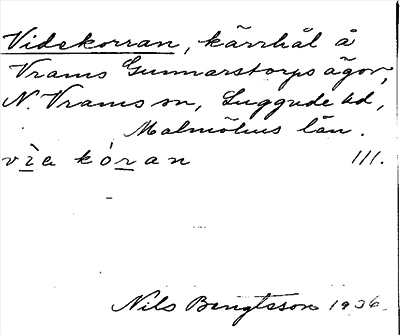 Videkorran, kärrhål å
Vrams Gunnarstorps ägor,
N. Vrams sn, Luggude hd,
Malmöhus län.
vìe kóran III.
Nils Bengtsson 1936.